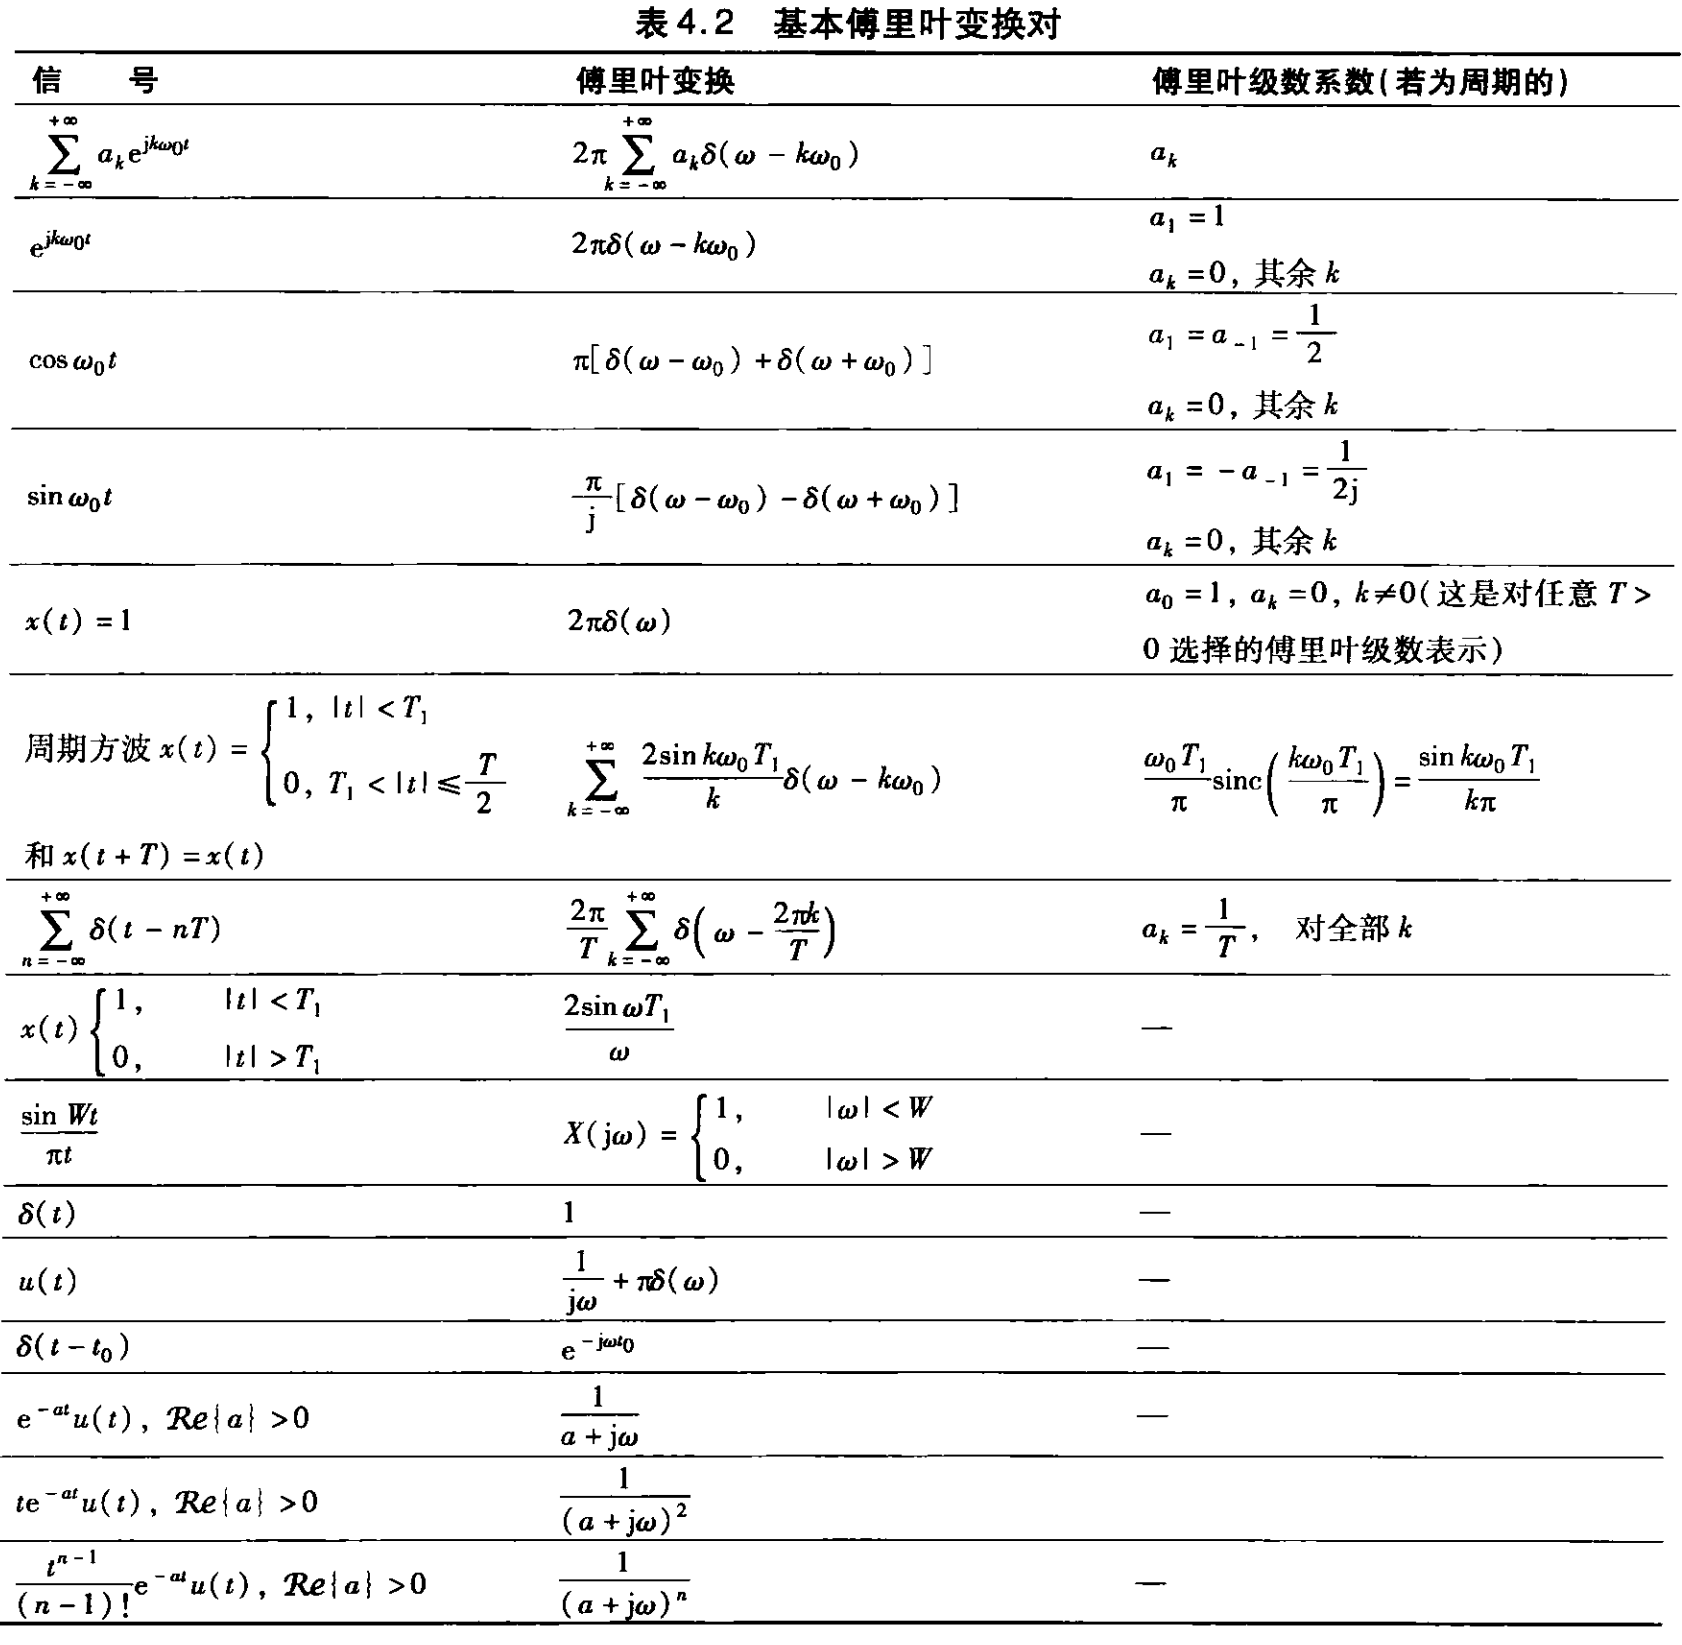 表 4.2 基本傅里叶变换对
信 号 傅里叶变换 傅里叶级数系数(若为周期的)
$\sum_{k=-\infty}^{+\infty} a_k \mathrm{e}^{\mathrm{j}k\omega_0 t}$ $2\pi \sum_{k=-\infty}^{+\infty} a_k \delta(\omega - k\omega_0)$ $a_k$
$\mathrm{e}^{\mathrm{j}k\omega_0 t}$ $2\pi\delta(\omega - k\omega_0)$ $a_1 = 1$
$a_k = 0$, 其余 $k$
$\cos\omega_0 t$ $\pi[\delta(\omega - \omega_0) + \delta(\omega + \omega_0)]$ $a_1 = a_{-1} = \frac{1}{2}$
$a_k = 0$, 其余 $k$
$\sin\omega_0 t$ $\frac{\pi}{\mathrm{j}}[\delta(\omega - \omega_0) - \delta(\omega + \omega_0)]$ $a_1 = -a_{-1} = \frac{1}{2\mathrm{j}}$
$a_k = 0$, 其余 $k$
$x(t) = 1$ $2\pi\delta(\omega)$ $a_0 = 1$, $a_k = 0$, $k \neq 0$(这是对任意 $T >$
0 选择的傅里叶级数表示)
周期方波 $x(t) = \begin{cases} 1, & |t| < T_1 \\ 0, & T_1 < |t| \leq \frac{T}{2} \end{cases}$ $\sum_{k=-\infty}^{+\infty} \frac{2\sin k\omega_0 T_1}{k} \delta(\omega - k\omega_0)$ $\frac{\omega_0 T_1}{\pi} \mathrm{sinc}\left(\frac{k\omega_0 T_1}{\pi}\right) = \frac{\sin k\omega_0 T_1}{k\pi}$
和 $x(t + T) = x(t)$
$\sum_{n=-\infty}^{+\infty} \delta(t - nT)$ $\frac{2\pi}{T} \sum_{k=-\infty}^{+\infty} \delta\left(\omega - \frac{2\pi k}{T}\right)$ $a_k = \frac{1}{T}$, 对全部 $k$
$x(t) \begin{cases} 1, & |t| < T_1 \\ 0, & |t| > T_1 \end{cases}$ $\frac{2\sin\omega T_1}{\omega}$ —
$\frac{\sin Wt}{\pi t}$ $X(\mathrm{j}\omega) = \begin{cases} 1, & |\omega| < W \\ 0, & |\omega| > W \end{cases}$ —
$\delta(t)$ 1 —
$u(t)$ $\frac{1}{\mathrm{j}\omega} + \pi\delta(\omega)$ —
$\delta(t - t_0)$ $\mathrm{e}^{-\mathrm{j}\omega t_0}$ —
$\mathrm{e}^{-at} u(t)$, $\mathcal{Re}\{a\} > 0$ $\frac{1}{a + \mathrm{j}\omega}$ —
$t\mathrm{e}^{-at} u(t)$, $\mathcal{Re}\{a\} > 0$ $\frac{1}{(a + \mathrm{j}\omega)^2}$
$\frac{t^{n-1}}{(n-1)!} \mathrm{e}^{-at} u(t)$, $\mathcal{Re}\{a\} > 0$ $\frac{1}{(a + \mathrm{j}\omega)^n}$ —